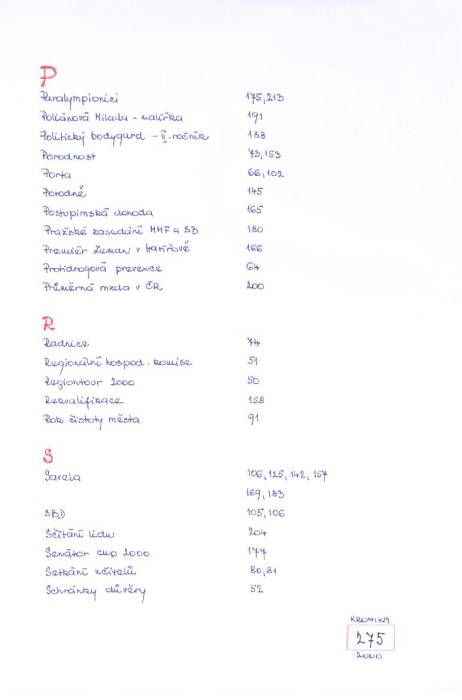 P
Paralympionici 175, 213
Poláánová Milada - malířka 191
Politický bodygard - II. ročník 188
Porodnost 73, 153
Porta 66, 102
Porodné 145
Postupimská dohoda 165
Pražské zasedání MMF a SB 180
Premiér Zeman v Karviné 166
Protidrogová prevence 64
Průměrná mzda v ČR 200
R
Radnice 74
Regionální hospod. komise 51
Regiontour 2000 50
Rekvalifikace 158
Rok čistoty města 91
S
Sarela 106, 125, 142, 157
169, 183
SBD 105, 106
Sčítání lidu 204
Senátor cup 2000 177
Setkání učitelů 80, 81
Schránky důvěry 52
KRONIKA
275
2000